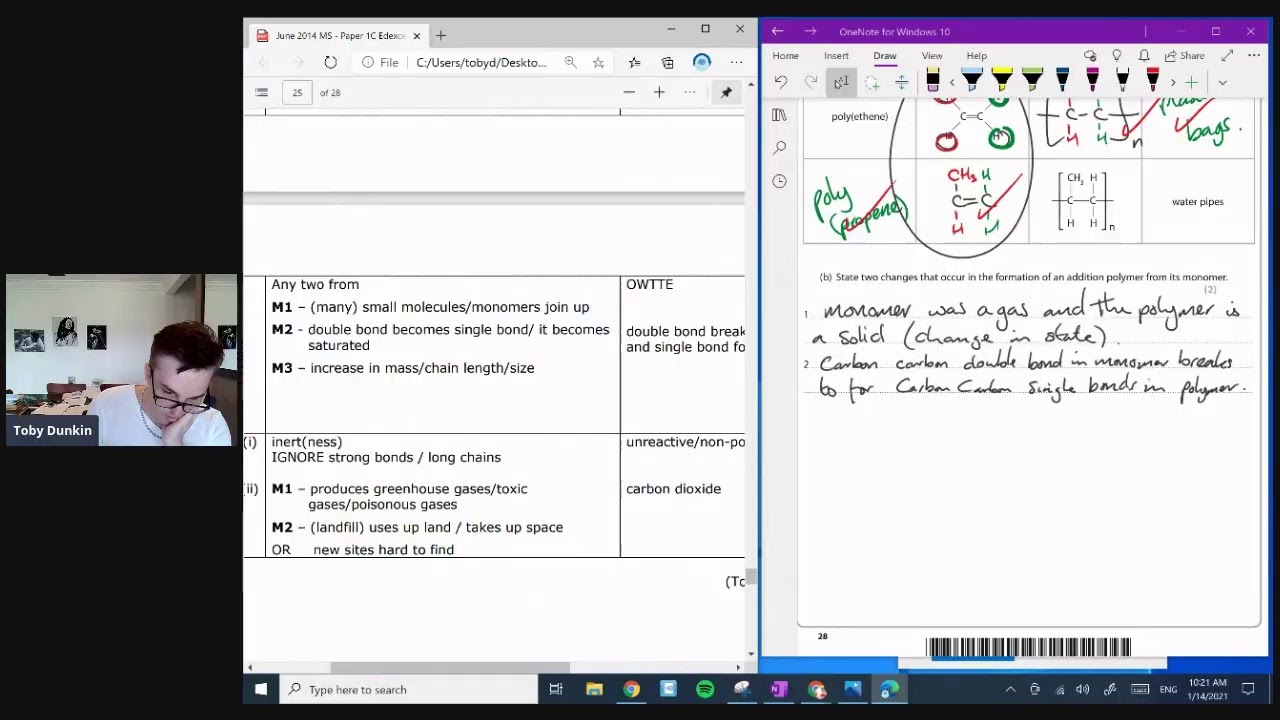 June 2014 MS - Paper 1C Edexce
OneNote for Windows 10
File
C:/Users/tobyd/Deskto...
Home
Insert
Draw
View
Help
Share
25
of 28
poly(ethene)
C=C
C C
H H
n
bags.
poly
(propene)
CH3 H
C=C
H H
CH3 H
C C
H H
n
water pipes
(b) State two changes that occur in the formation of an addition polymer from its monomer.
(2)
1 monomer was a gas and the polymer is
a solid (change in state).
2 Carbon carbon double bond in monomer breaks
to for Carbon Carbon single bonds in polymer.
28
Any two from
OWTTE
M1 – (many) small molecules/monomers join up
M2 - double bond becomes single bond/ it becomes
saturated
double bond break
and single bond fo
M3 – increase in mass/chain length/size
(i)
inert(ness)
unreactive/non-po
IGNORE strong bonds / long chains
(ii)
M1 – produces greenhouse gases/toxic
gases/poisonous gases
carbon dioxide
M2 – (landfill) uses up land / takes up space
OR new sites hard to find
(To
Toby Dunkin
Type here to search
ENG
10:21 AM
1/14/2021